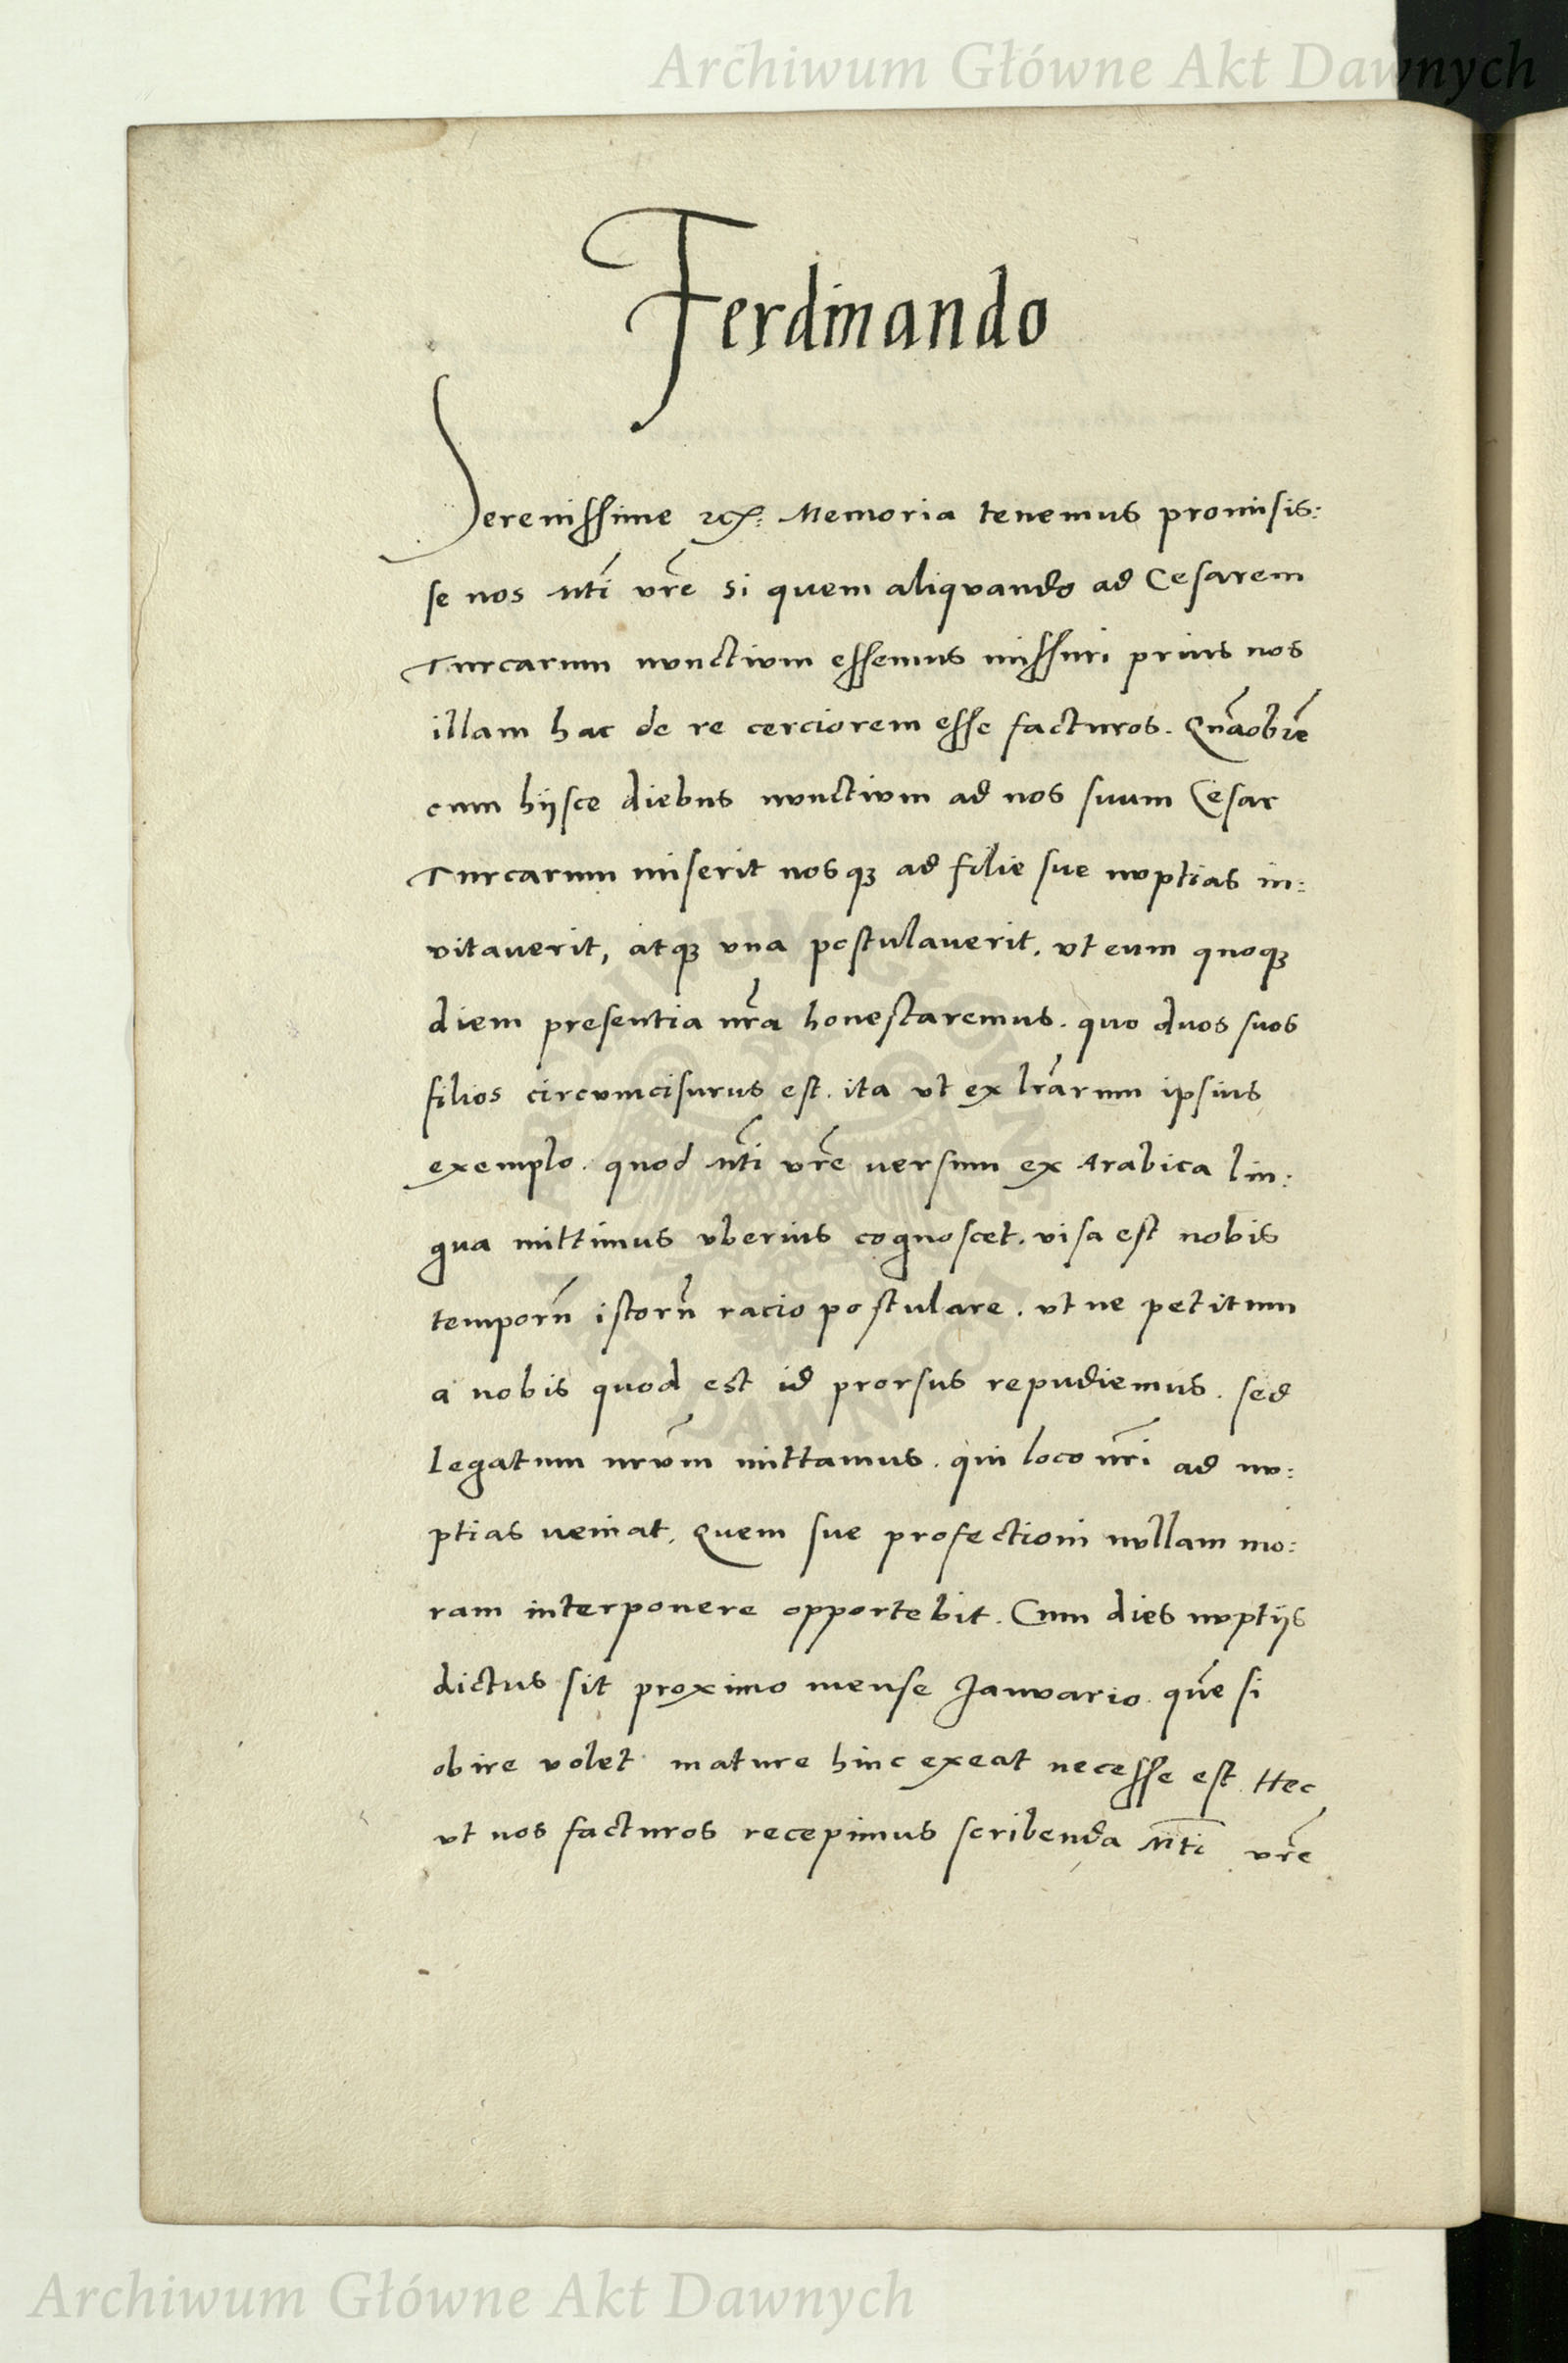 Archiwum Główne Akt Dawnych
Ferdinando
Serenissime etc: Memoria tenemus promisis:
se nos Mti vre si quem aliquando ad Cesarem
Turcarum nunctium essemus missuri prius nos
illam hac de re cerciorem esse facturos. Quãobrẽ
cum hijsce diebus nunctium ad nos suum Cesar
Turcarum miserit nosqȝ ad filie sue nuptias in:
vitaverit, atqȝ vna postulaverit. vt eum quoqȝ
diem presentia nr̃a honestaremus. quo duos suos
filios circumcisurus est. ita vt ex lr̃arum ipsius
exemplo. quod Mti vre versum ex Arabica lin:
gua mittimus vberius cognoscet. visa est nobis
temporũ istorũ racio postulare. vt ne petitum
a nobis quod est id prorsus repudiemus. sed
legatum nrũm mittamus. qui loco nr̃i ad nu:
ptias veniat. Quem sue profectioni nullam mo:
ram interponere opportebit. Cum dies nuptijs
dictus sit proximo mense Januario. quẽ si
obire volet mature hinc exeat necesse est. Hec
vt nos facturos recepimus scribenda Mti vre
ARCHIWUM GŁÓWNE
AKT DAWNYCH
Archiwum Główne Akt Dawnych